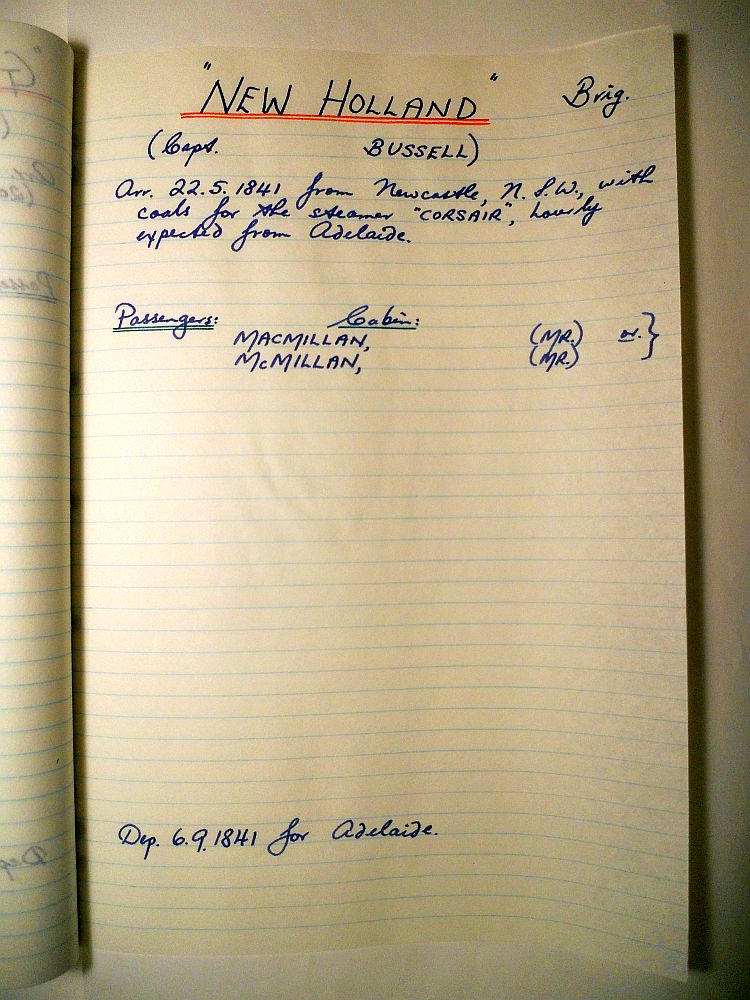 "NEW HOLLAND" Brig.
(Capt. BUSSELL)
Arr. 22.5.1841 from Newcastle, N.S.W., with
coals for the steamer "CORSAIR", hourly
expected from Adelaide.
Passengers: Cabin:
MACMILLAN, (MR.) or. }
McMILLAN, (MR.)
Dep. 6.9.1841 for Adelaide.